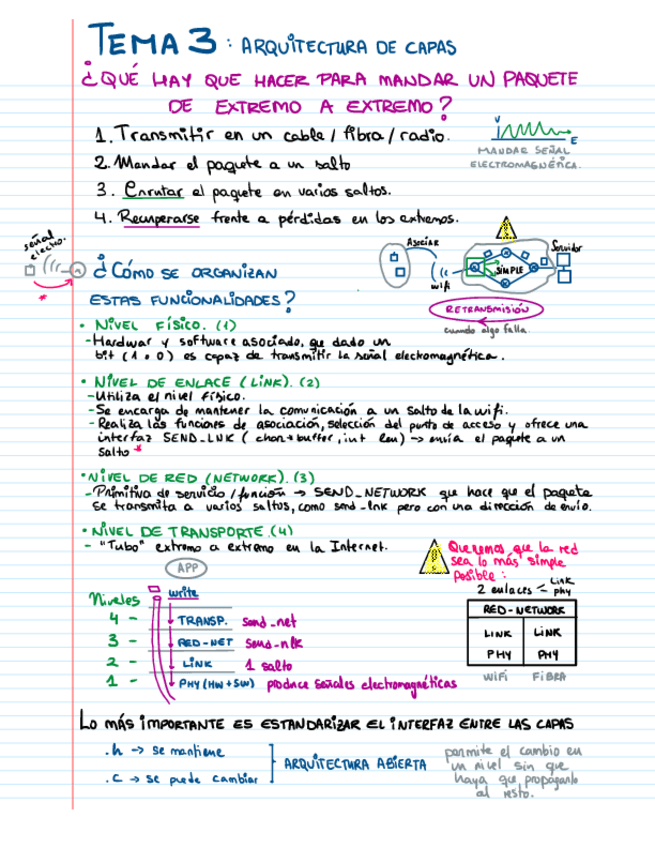 TEMA 3: ARQUITECTURA DE CAPAS
¿QUÉ HAY QUE HACER PARA MANDAR UN PAQUETE
DE EXTREMO A EXTREMO?
1. Transmitir en un cable / fibra / radio.
V
E
MANDAR SEÑAL
ELECTROMAGNÉTICA.
2. Mandar el paquete a un salto
3. Enrutar el paquete en varios saltos.
4. Recuperarse frente a pérdidas en los extremos.
señal
electro.
*
Asociar
wifi
SIMPLE
Servidor
RETRANSMISIÓN
cuando algo falla.
¿CÓMO SE ORGANIZAN
ESTAS FUNCIONALIDADES?
• NIVEL FÍSICO. (1)
- Hardwar y software asociado, que dado un
bit (1 o 0) es capaz de transmitir la señal electomagnética.
• NIVEL DE ENLACE (LINK). (2)
- Utiliza el nivel físico.
- Se encarga de mantener la comunicación a un salto de la wifi.
- Realiza las funciones de asociación, selección del punto de acceso y ofrece una
interfaz SEND_LNK (char * buffer, int len) → envía el paquete a un
salto *
• NIVEL DE RED (NETWORK). (3)
- Primitiva de servicio / función → SEND_NETWORK que hace que el paquete
se transmita a varios saltos, como send-lnk pero con una dirección de envío.
• NIVEL DE TRANSPORTE. (4)
- "Tubo" extremo a extremo en la Internet.
APP
Niveles
write
4 - TRANSP. send_net
3 - RED-NET send-nlk
2 - LINK 1 salto
1 - PHY (HW + SW) produce señales electromagnéticas
Queremos que la red
sea lo más simple
posible:
2 enlaces
Link
phy
RED-NETWORK
LINK LINK
PHY PHY
WIFI FIBRA
LO MÁS IMPORTANTE ES ESTANDARIZAR EL INTERFAZ ENTRE LAS CAPAS
.h → se mantiene
.c → se puede cambiar
ARQUITECTURA ABIERTA
permite el cambio en
un nivel sin que
haya que propagarlo
al resto.